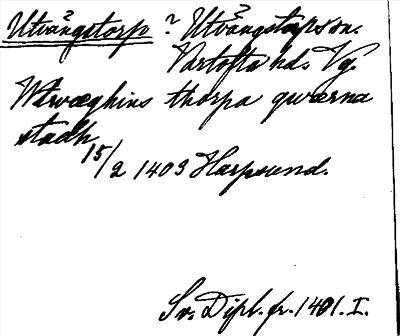 Utvängstorp ? Utvängstorps sn.
Vartofta hd. Vg.
Wtwæghins thorpa qwærna
stadh
15/2 1403 Harpsund.
Sv. Dipl. fr. 1401. I.